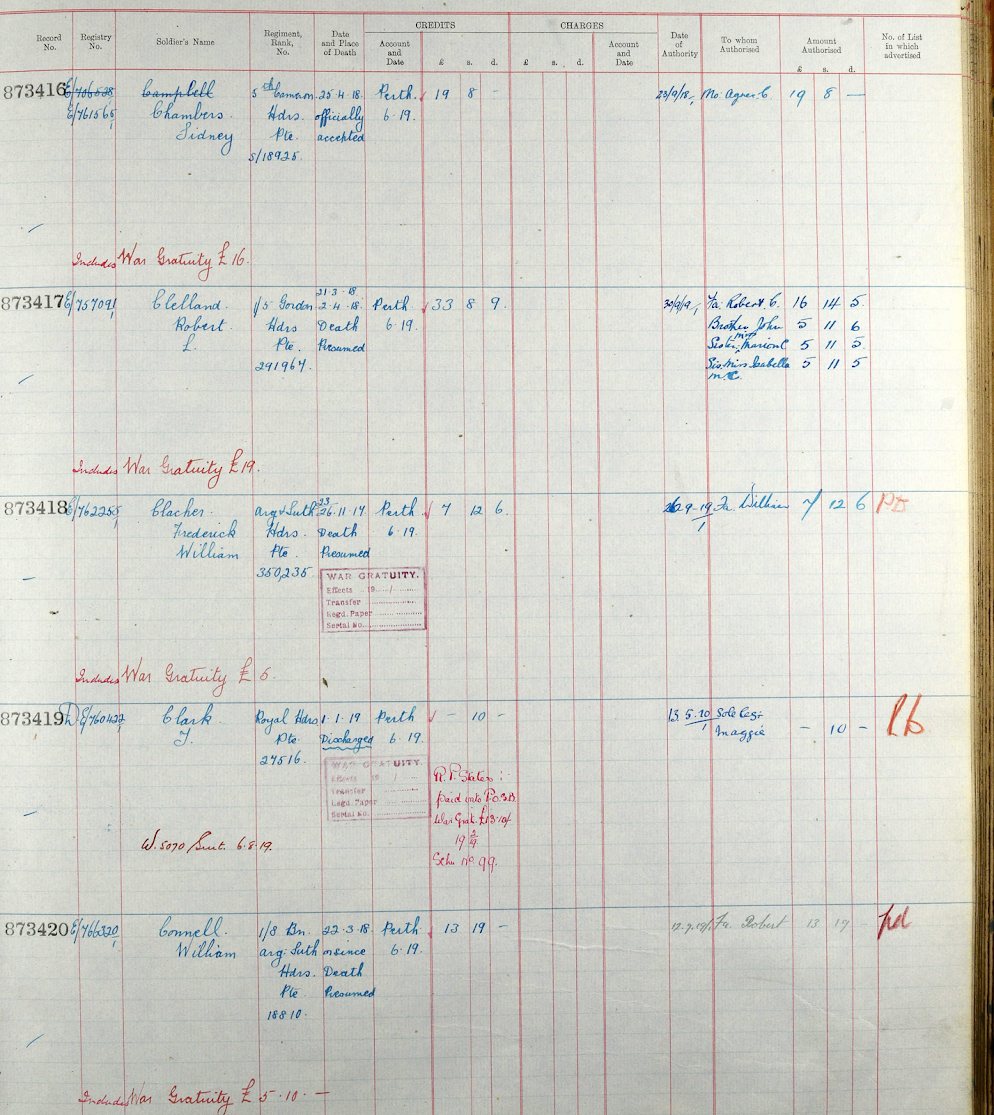 CREDITS CHARGES
Record No. Registry No. Soldier's Name Regiment, Rank, No. Date and Place of Death Account and Date £ s. d. £ s. d. Account and Date Date of Authority To whom Authorised Amount Authorised £ s. d. No. of List in which advertised
873416 E/706528 Campbell 5th Cameron 25.4.18. Perth 19 8 - 23/9/19, Mo. Agnes C 19 8 -
E/761565/1 Chambers Hdrs. officially 6.19.
Sidney Pte. accepted
S/18925
Includes War Gratuity £16.
21.3.18
873417 E/757091/1 Clelland 1/5 Gordon 2.4.18. Perth 33 8 9. 30/9/19, Fa: Robert C. 16 14 5.
Robert Hdrs Death 6.19. Brother John 5 11 6
L. Pte. Presumed Sister, Mrs Marion C 5 11 5.
291964. Sis. Miss Isabella 5 11 5
M.C.
Includes War Gratuity £19.
23
873418 E/762255/1 Clacher. Arg & Suth 26.11.17 Perth 7 12 6. 26.9.19/1 Fa. William 7 12 6 PD
Frederick Hdrs. Death 6.19.
William Pte. Presumed
350,235
WAR GRATUITY.
Effects 19 /
Transfer
Regd. Paper
Serial No.
Includes War Gratuity £5.
873419 E/760427/1 Clark Royal Hdrs 1.1.19 Perth - 10 - 13.5.20/1 Sole Leg:
J. Pte. Discharged 6.19. Maggie - 10 -
27516.
WAR GRATUITY.
Effects 19 /
Transfer
Legd. Paper
Serial No.
R.P. States:-
paid into P.O.S.B
War Grat. £13.10/
Sch. No. 99.
W.5070 6.8.19.
873420 E/766320/1 Connell. 1/8 Bn. 22.3.18 Perth 13 19 - 17.9.19/1 Fa. Robert 13 19 - pd
William Arg: Suth or since 6.19.
Hdrs. Death
Pte Presumed
18810.
Includes War Gratuity £5.10.-